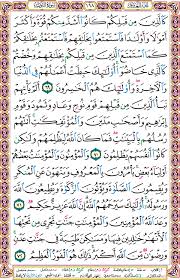 ١٩٨
كَٱلَّذِينَ مِن قَبْلِكُمْ كَانُوٓا۟ أَشَدَّ مِنكُمْ قُوَّةً وَأَكْثَرَ
أَمْوَٰلًا وَأَوْلَٰدًا فَٱسْتَمْتَعُوا۟ بِخَلَٰقِهِمْ فَٱسْتَمْتَعْتُم بِخَلَٰقِكُمْ
كَمَا ٱسْتَمْتَعَ ٱلَّذِينَ مِن قَبْلِكُم بِخَلَٰقِهِمْ وَخُضْتُمْ
كَٱلَّذِى خَاضُوٓا۟ أُو۟لَٰٓئِكَ حَبِطَتْ أَعْمَٰلُهُمْ فِى ٱلدُّنْيَا
وَٱلْءَاخِرَةِ وَأُو۟لَٰٓئِكَ هُمُ ٱلْخَٰسِرُونَ ٦٩ أَلَمْ يَأْتِهِمْ
نَبَأُ ٱلَّذِينَ مِن قَبْلِهِمْ قَوْمِ نُوحٍ وَعَادٍ وَثَمُودَ وَقَوْمِ
إِبْرَٰهِيمَ وَأَصْحَٰبِ مَدْيَنَ وَٱلْمُؤْتَفِكَٰتِ أَتَتْهُمْ
رُسُلُهُم بِٱلْبَيِّنَٰتِ فَمَا كَانَ ٱللَّهُ لِيَظْلِمَهُمْ وَلَٰكِن
كَانُوٓا۟ أَنفُسَهُمْ يَظْلِمُونَ ٧٠ وَٱلْمُؤْمِنُونَ وَٱلْمُؤْمِنَٰتُ
بَعْضُهُمْ أَوْلِيَآءُ بَعْضٍ يَأْمُرُونَ بِٱلْمَعْرُوفِ وَيَنْهَوْنَ عَنِ
ٱلْمُنكَرِ وَيُقِيمُونَ ٱلصَّلَوٰةَ وَيُؤْتُونَ ٱلزَّكَوٰةَ وَيُطِيعُونَ
ٱللَّهَ وَرَسُولَهُۥٓ أُو۟لَٰٓئِكَ سَيَرْحَمُهُمُ ٱللَّهُ إِنَّ ٱللَّهَ عَزِيزٌ حَكِيمٌ ٧١
وَعَدَ ٱللَّهُ ٱلْمُؤْمِنِينَ وَٱلْمُؤْمِنَٰتِ جَنَّٰتٍ تَجْرِى مِن تَحْتِهَا
ٱلْأَنْهَٰرُ خَٰلِدِينَ فِيهَا وَمَسَٰكِنَ طَيِّبَةً فِى جَنَّٰتِ عَدْنٍ
وَرِضْوَٰنٌ مِّنَ ٱللَّهِ أَكْبَرُ ذَٰلِكَ هُوَ ٱلْفَوْزُ ٱلْعَظِيمُ ٧٢